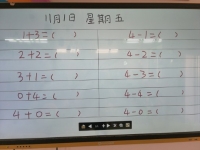 11月1日 星期五
1+3=( ) 4-1=( )
2+2=( ) 4-2=( )
3+1=( ) 4-3=( )
0+4=( ) 4-4=( )
4+0=( ) 4-0=( )